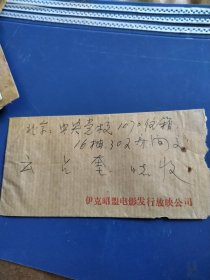 北京：中央党校1070信箱
16楼302房间
云占奎 收
伊克昭盟电影发行放映公司